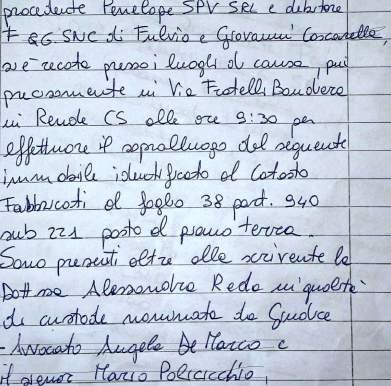 procedente Penelope SPV SRL e debitore
F & G. SNC di Fulvio e Giovanni Coscarella,
si è recata presso i luoghi di causa, più
precisamente in Via Fratelli Bandiera
in Rende CS alle ore 9:30 per
effettuare il sopralluogo del seguente
immobile identificato al Catasto
Fabbricati al foglio 38 part. 940
sub 221 posto al piano terra.
Sono presenti oltre alla scrivente la
Dott.ssa Alessandra Reda in qualità
di custode nominata da Giudice
- Avvocato Angela De Marco e
il signor Mario Policicchio,